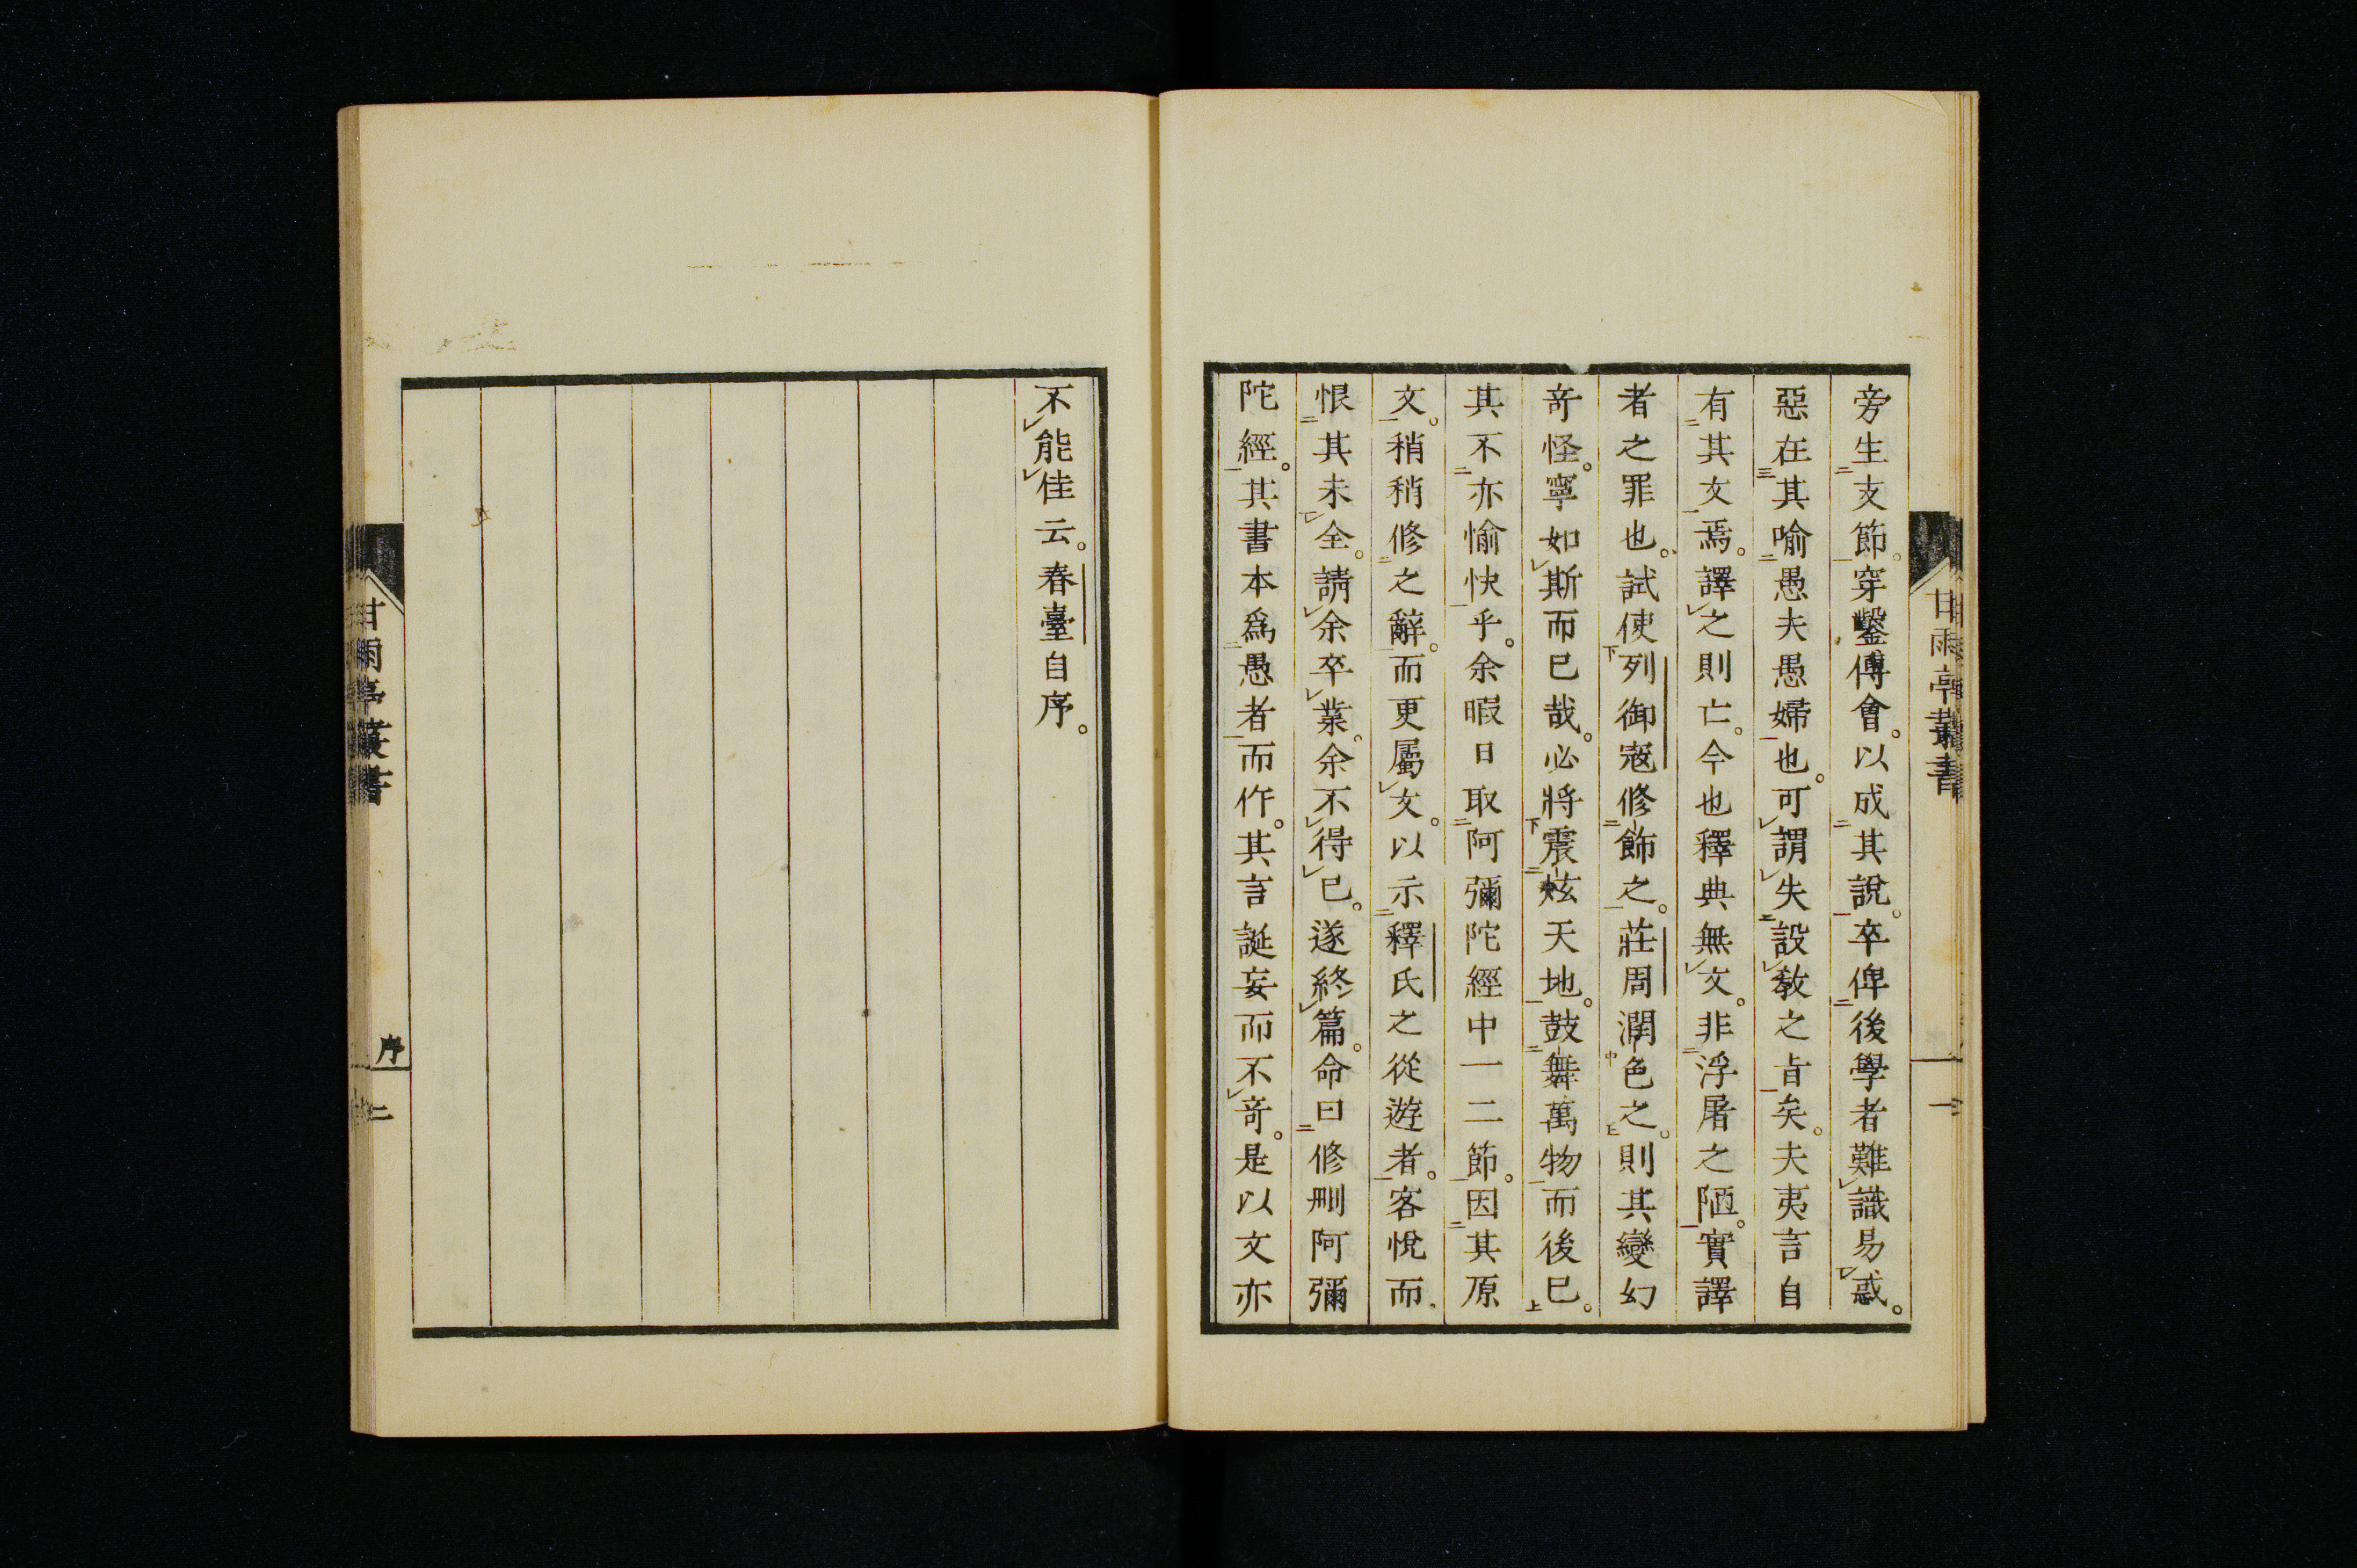 旁生支節。穿鑿傅會。以成其說。卒俾後學者難識易惑。
惡在其喻愚夫愚婦也。可謂失設敎之旨矣。夫夷言自
有其文焉。譯之則亡。今也釋典無文。非浮屠之陋。實譯
者之罪也。試使列御寇修飾之。莊周潤色之。則其變幻
奇怪。寧如斯而已哉。必將震炫天地。鼓舞萬物而後已。
其不亦愉快乎。余暇日取阿彌陀經中一二節。因其原
文。稍稍修之辭。而更屬文。以示釋氏之從遊者。客悅而
恨其未全。請余卒業。余不得已。遂終篇。命曰修刪阿彌
陀經。其書本爲愚者而作。其言誕妄而不奇。是以文亦
不能佳云。春臺自序。
甘雨亭叢書
序
二